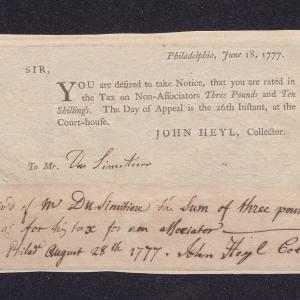 Philadelphia, June 18, 1777.
SIR,
YOU are desired to take Notice, that you are rated in
the Tax on Non-Associators Three Pounds and Ten
Shillings. The Day of Appeal is the 26th Instant, at the
Court-house.
JOHN HEYL, Collector.
To Mr. Du Simitiere
of Mr DuSimitiere the Sum of three poun
for his tax for non associator
Philad August 28th 1777. John Heyl Col